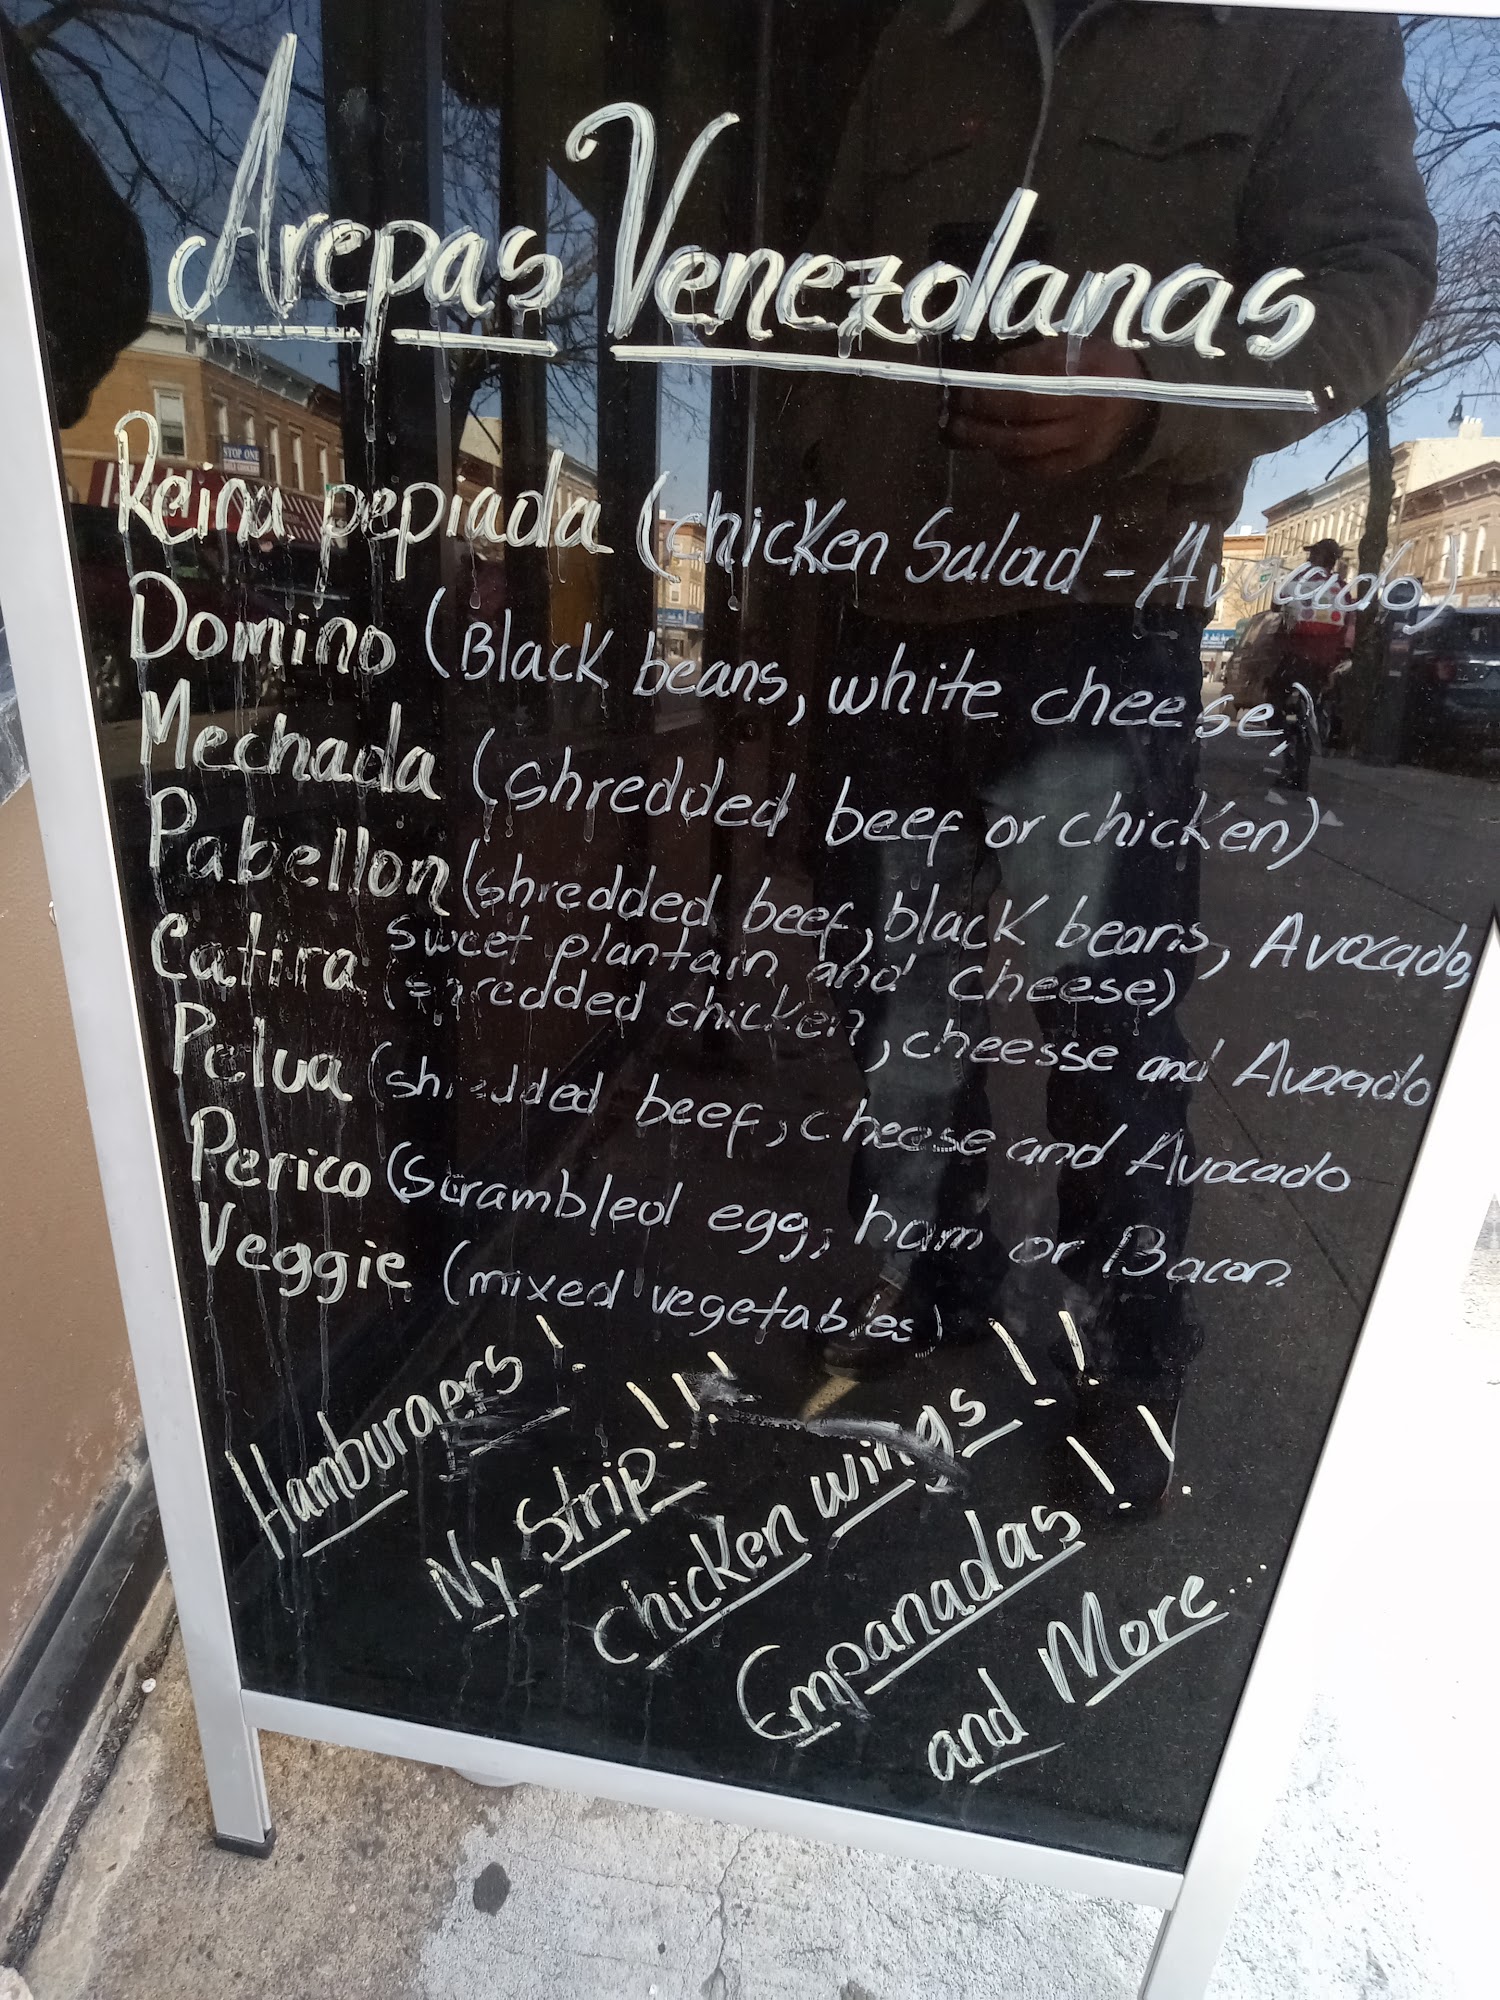 Arepas Venezolanas
Reina pepiada (chicken Salad - Avocado)
Domino (Black beans, white cheese,)
Mechada (shredded beef or chicken)
Pabellon (shredded beef, black beans, Avocado,
sweet plantain and cheese)
Catira (shredded chicken, cheesse and Avocado
Pelua (shredded beef, cheese and Avocado
Perico (Scrambled egg, ham or Bacon
Veggie (mixed vegetables)
Hamburgers!
Ny Strip!!!
chicken wings!!
Empanadas!!
and More....
STOP ONE